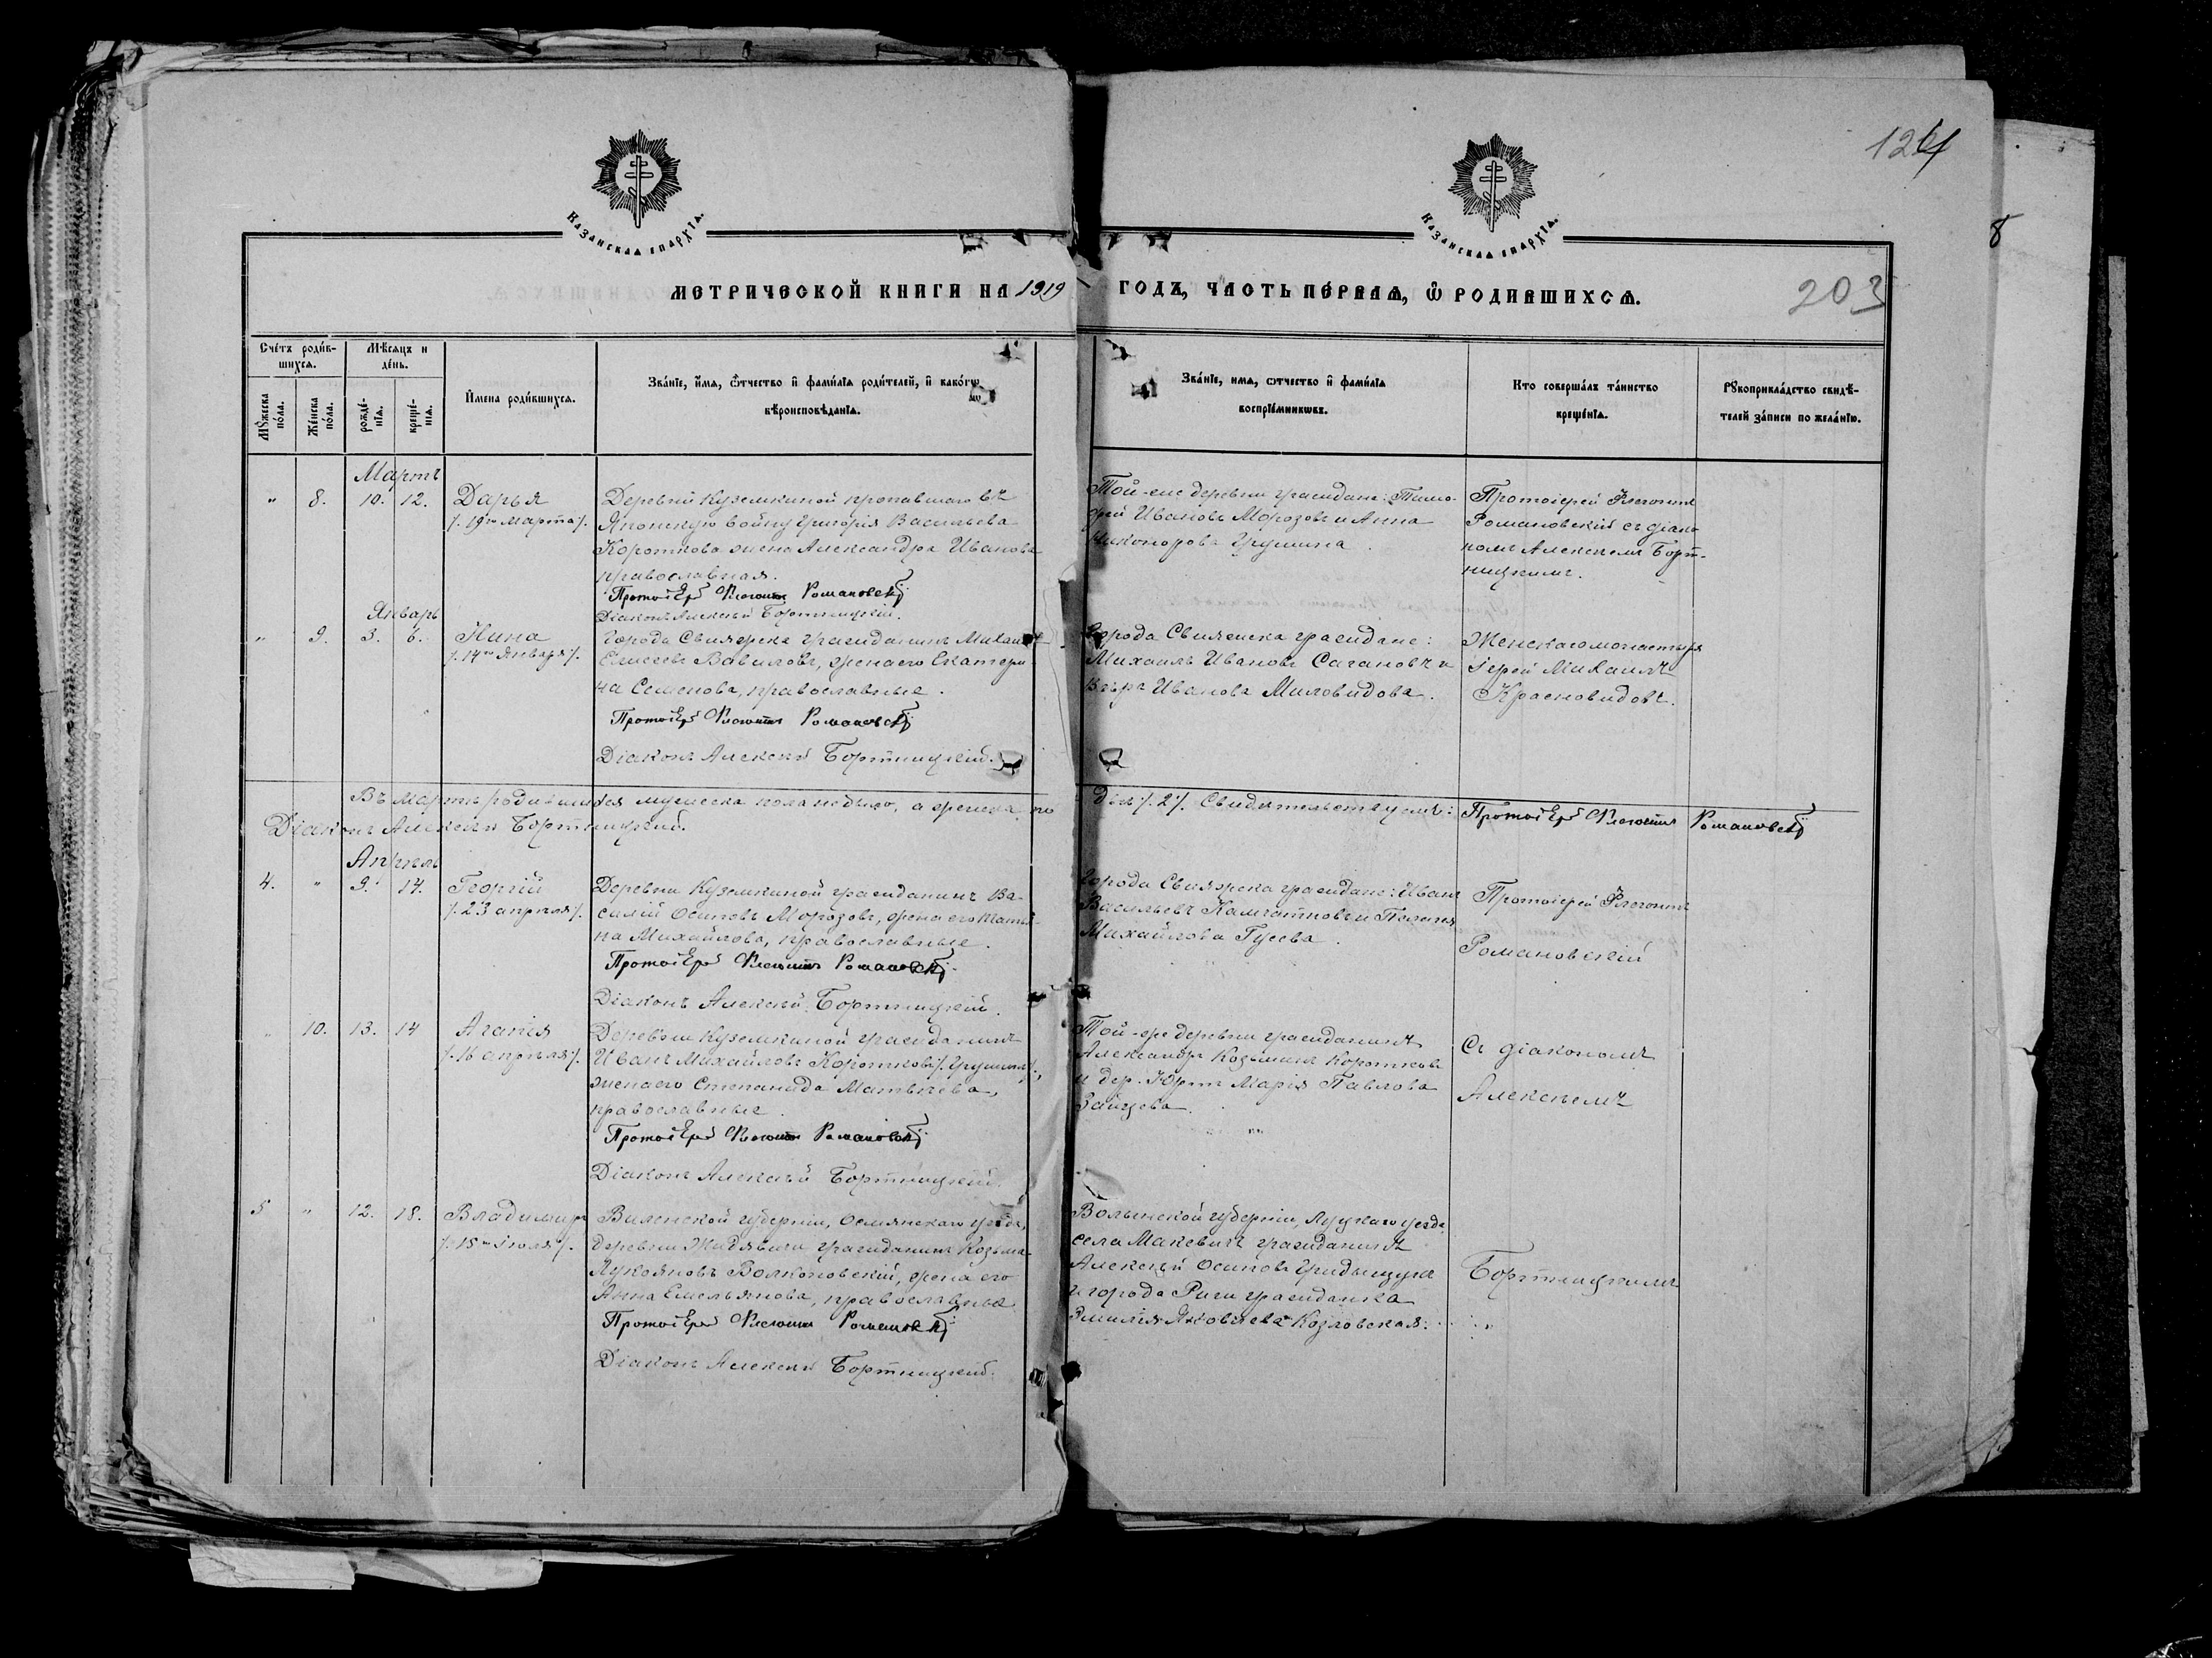 124
8
Казанская епархїа.
Казанская епархїа.
МЕТРИЧЕСКОЙ КНИГИ НА 1919 ГОДЪ, ЧАСТЬ ПЕРВАЯ, Ѿ РОДИВШИХСЯ.
203
Счетъ родив-
шихся.
Мѣсяцъ и
день.
Мужеска
пола.
Женска
пола.
рожде-
нія.
креще-
нія.
Имена родившихся.
Званіе, имя, отчество и фамилія родителей, и какого
вѣроисповѣданія.
Званіе, имя, отчество и фамилія
воспріемниковъ.
Кто совершалъ таинство
крещенія.
Рукоприкладство свидѣ-
телей записи по желанію.
Мартъ
" 8. 10. 12. Дарья
/. 19го марта /.
Деревни Куземкиной пропавшаго въ
Японскую войну Григорія Васильева
Короткова жена Александра Иванова
православная.
Протоіерей Флегонтъ Романовскій
Діаконъ Алексѣй Бортницкій.
Той-же деревни граждане: Тимо-
фей Ивановъ Морозовъ и Анна
Никонорова Грушина.
Протоіерей Флегонтъ
Романовскій съ діако
номъ Алексѣемъ Борт-
ницкимъ.
Январь
" 9. 3. 6. Нина
/. 14го Января /.
Города Свіяжска гражданинъ Михаилъ
Елисеевъ Вавиловъ, жена его Екатери
на Семенова, православные.
Протоіерей Флегонтъ Романовскій
Діаконъ Алексѣй Бортницкій.
Города Свіяжска граждане:
Михаилъ Ивановъ Сагановъ и
Вѣра Иванова Миловидова.
Женскаго монастыря
Іерей Михаилъ
Красновидовъ.
Въ мартѣ родившихся мужеска пола не было, а женска по
двѣ /. 2 /. Свидѣтельствуемъ: Протоіерей Флегонтъ Романовскій
Діаконъ Алексѣй Бортницкій.
Апрѣль
4. " 9. 14. Георгій
/. 23 апрѣля /.
Деревни Куземкиной гражданинъ Ва-
силій Осиповъ Морозовъ, жена его Татья-
на Михайлова, православные.
Протоіерей Флегонтъ Романовскій
Діаконъ Алексѣй Бортницкій.
Города Свіяжска граждане: Иванъ
Васильевъ Камчатновъ и Пелагея
Михайлова Гусева.
Протоіерей Флегонтъ
Романовскій
" 10. 13. 14 Агапія
/. 16 апрѣля /.
Деревни Куземкиной гражданинъ
Иванъ Михайловъ Коротковъ /. Грушинъ /.,
жена его Степанида Матвѣева,
православные.
Протоіерей Флегонтъ Романовскій
Діаконъ Алексѣй Бортницкій.
Той-же деревни гражданинъ
Александръ Козьминъ Коротковъ
и дер. Юрт Марія Павлова
Зайцева.
Съ діакономъ
Алексѣемъ
5 " 12. 18. Владимиръ
/. 15го Іюля /.
Виленской губерніи, Ошмянскаго уѣзда,
деревни Жидявичи гражданинъ Козьма
Лукояновъ Волконовскій, жена его
Анна Емельянова, православные
Протоіерей Флегонтъ Романовскій
Діаконъ Алексѣй Бортницкій.
Волынской губерніи, Луцкаго уезда
села Макевичъ гражданинъ
Алексѣй Осиповъ Гридыщук
и города Риги гражданка
Эмилія Яковлева Козловская.
Бортницкимъ